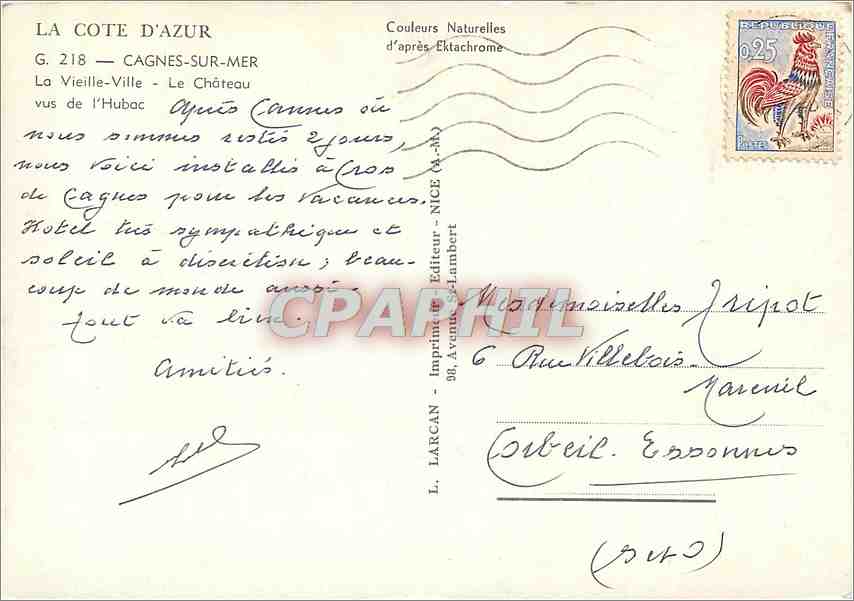 LA COTE D'AZUR
G. 218 — CAGNES-SUR-MER
La Vieille-Ville - Le Château
vus de l'Hubac
Couleurs Naturelles
d'après Ektachrome
REPUBLIQUE FRANÇAISE
0,25
POSTES
Après Cannes où
nous sommes restés 2 jours,
nous voici installés à Cros
de Cagnes pour les vacances.
Hotel très sympathique et
soleil à discrétion ; beau-
coup de monde aussi.
Tout va bien.
Amitiés.
L. LARCAN - Imprimeur - Editeur - NICE (A.-M.)
98, Avenue St-Lambert
CPAPHIL
Mesdemoiselles Tripot
6 Rue Villebois.
Mareuil
Corbeil. Essonnes
(S et O)